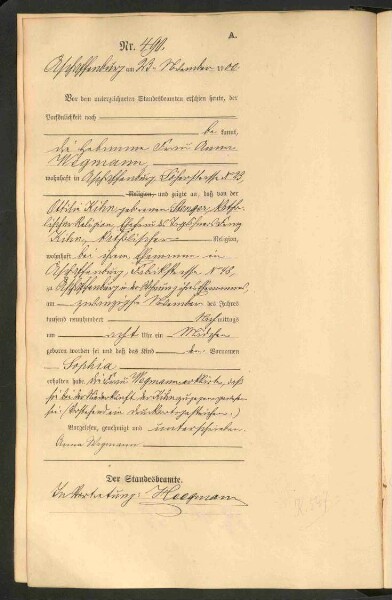 A.
Nr. 490.
Aschaffenburg am 23. November 1900
Vor dem unterzeichneten Standesbeamten erschien heute, der
Persönlichkeit nach
be kannt,
die Hebamme Frau Anna
Wegmann,
wohnhaft in Aschaffenburg,
Religion, und zeigte an, daß von der
Ottilie Kihn, geborenen Stenger, katho-
lischer Religion, Ehefrau des Taglöhners
Kihn, katholischer Religion,
wohnhaft bei ihrem Ehemanne in
Aschaffenburg, Fabrikstrasse N 48,
zu Aschaffenburg in der Wohnung ihres Ehemannes,
am zwanzigsten November des Jahres
tausend neunhundert Nachmittags
um acht Uhr ein Mädchen
geboren worden sei und daß das Kind den Vornamen
Sophia
erhalten habe. Die Frau Wegmann erklärte, daß
sie bei der Niederkunft der Kihn zugegen gewesen
sei. (Vorstehend ein Druckwort gestrichen.)
Vorgelesen, genehmigt und unterschrieben
Anna Wegmann
Der Standesbeamte.
In Vertretung: Heegmann